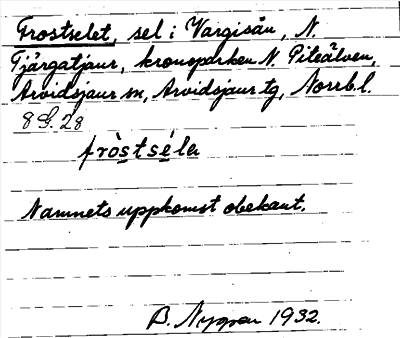 Frostselet, sel i Vargisån, N.
Tjärgatjaur, kronoparken N. Piteälven,
Arvidsjaur sn, Arvidsjaur tg, Norrb.l.
8 G. 28
fròstsélẹ
Namnets uppkomst obekant.
B. Nygren 1932.